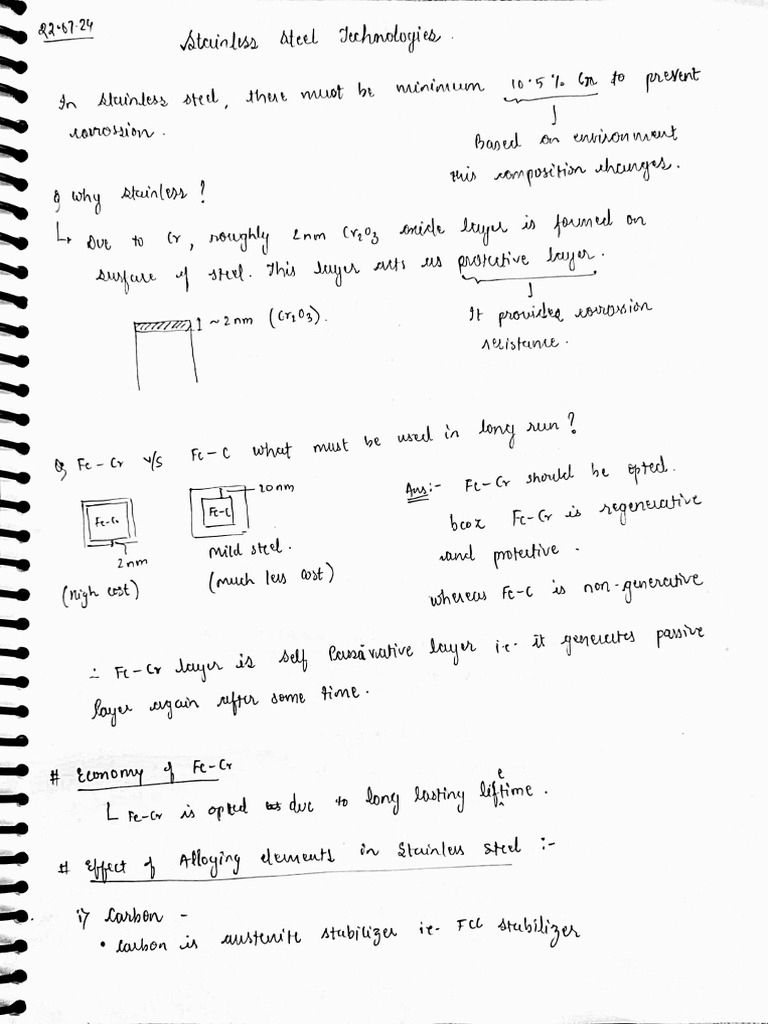 22.07.24
Stainless Steel Technologies.
In stainless steel, there must be minimum 10.5% Cr to prevent
corrossion.
Based on environment
this composition changes.
Q Why stainless?
Due to Cr, roughly 2nm Cr2O3 oxide layer is formed on
surface of steel. This layer acts as protective layer.
It provides corrossion
resistance.
~2nm (Cr2O3).
Q Fe-Cr v/s Fe-C what must be used in long run?
Fe-Cr
2nm
(High cost)
20nm
Fe-C
Mild steel.
(much less cost)
Ans:- Fe-Cr should be opted.
bcoz Fe-Cr is regenerative
and protective.
whereas Fe-C is non-generative
∴ Fe-Cr layer is self Passivative layer i.e. it generates passive
layer again after some time.
# Economy of Fe-Cr
Fe-Cr is opted due to long lasting lifetime.
# Effect of Alloying elements in Stainless steel :-
i) Carbon -
• Carbon is austenite stabilizer ie. FCC stabilizer